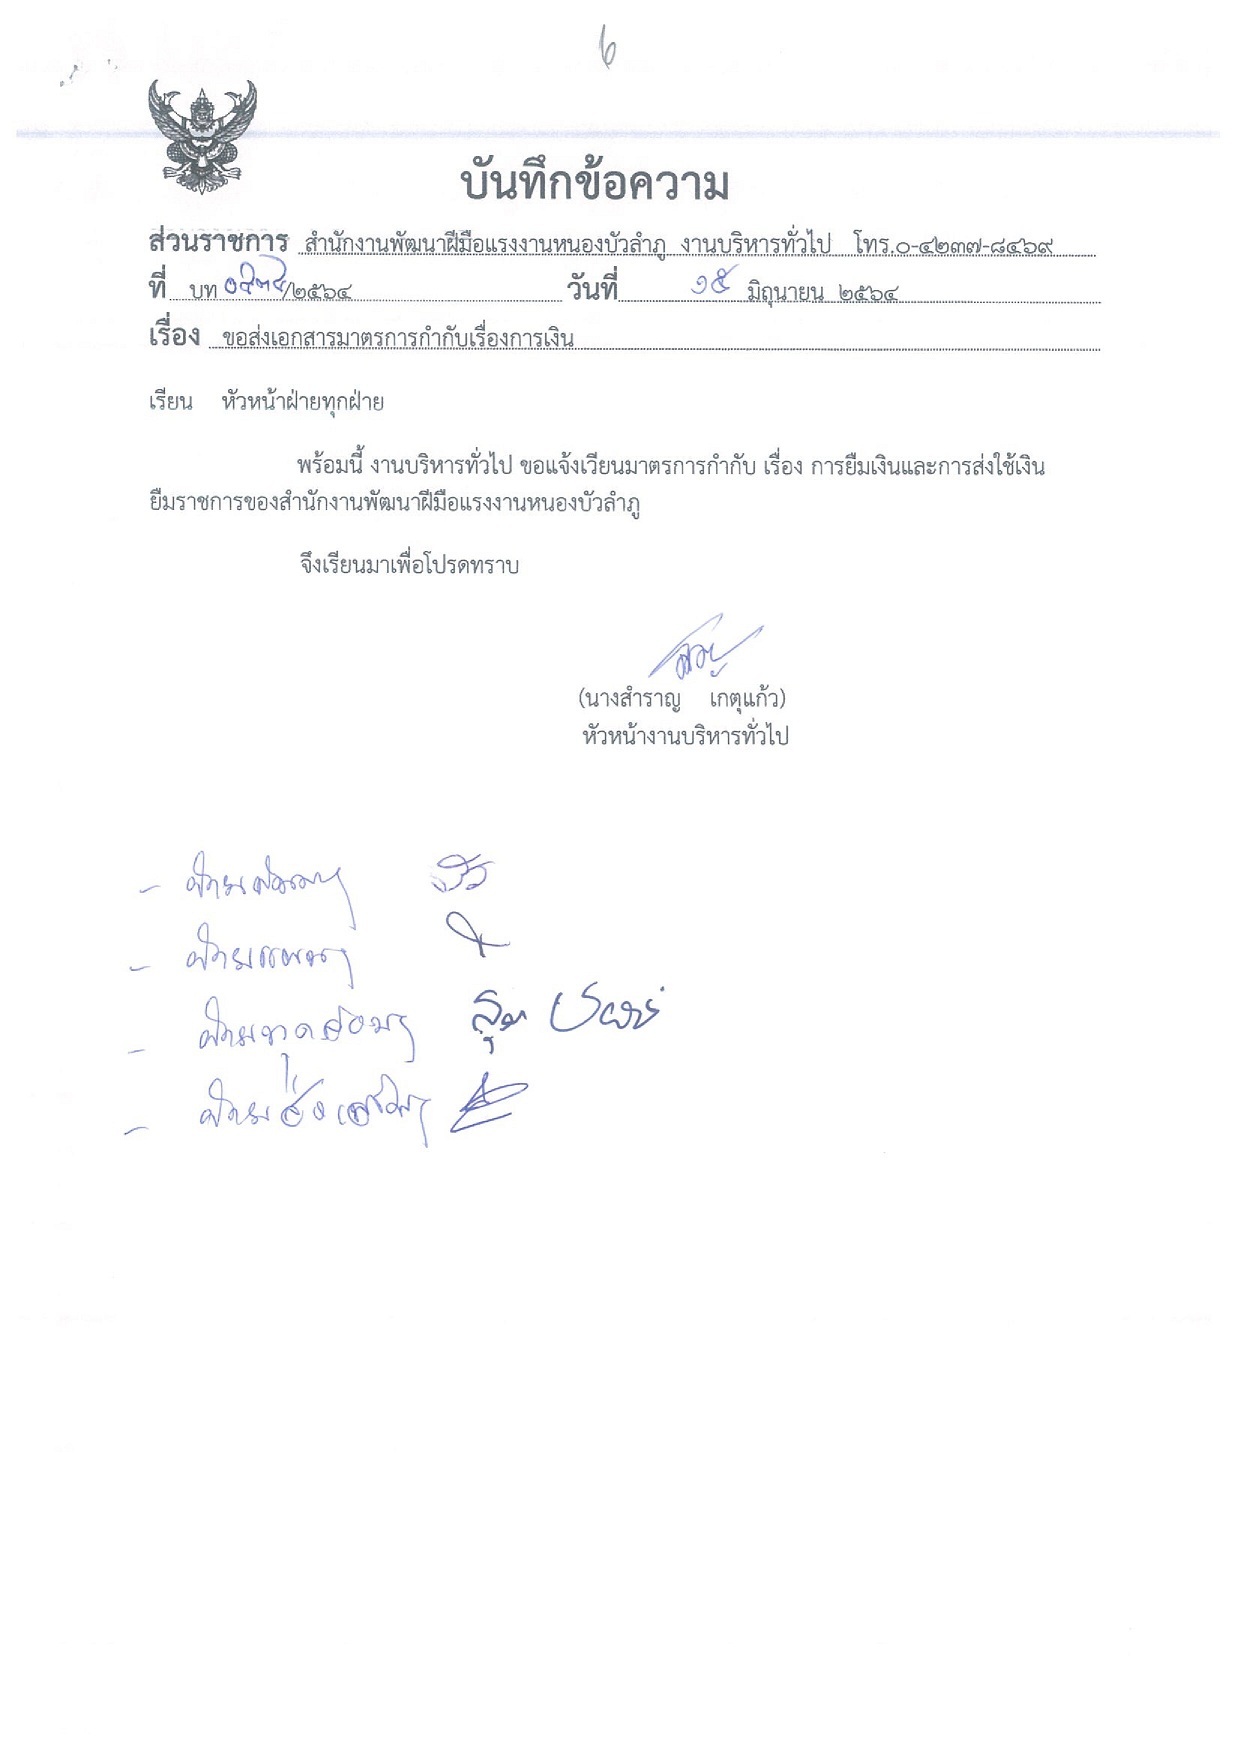 ๖
บันทึกข้อความ
ส่วนราชการ สำนักงานพัฒนาฝีมือแรงงานหนองบัวลำภู งานบริหารทั่วไป โทร.๐-๔๒๓๗-๘๔๖๙
ที่ บท /๒๕๖๔ วันที่ ๑๕ มิถุนายน ๒๕๖๔
เรื่อง ขอส่งเอกสารมาตรการกำกับเรื่องการเงิน
เรียน หัวหน้าฝ่ายทุกฝ่าย
พร้อมนี้ งานบริหารทั่วไป ขอแจ้งเวียนมาตรการกำกับ เรื่อง การยืมเงินและการส่งใช้เงิน
ยืมราชการของสำนักงานพัฒนาฝีมือแรงงานหนองบัวลำภู
จึงเรียนมาเพื่อโปรดทราบ
(นางสำราญ เกตุแก้ว)
หัวหน้างานบริหารทั่วไป
- ฝ่ายพัฒนาฯ
- ฝ่ายแผนฯ
- ฝ่ายทดสอบฯ
- ฝ่ายส่งเสริมฯ